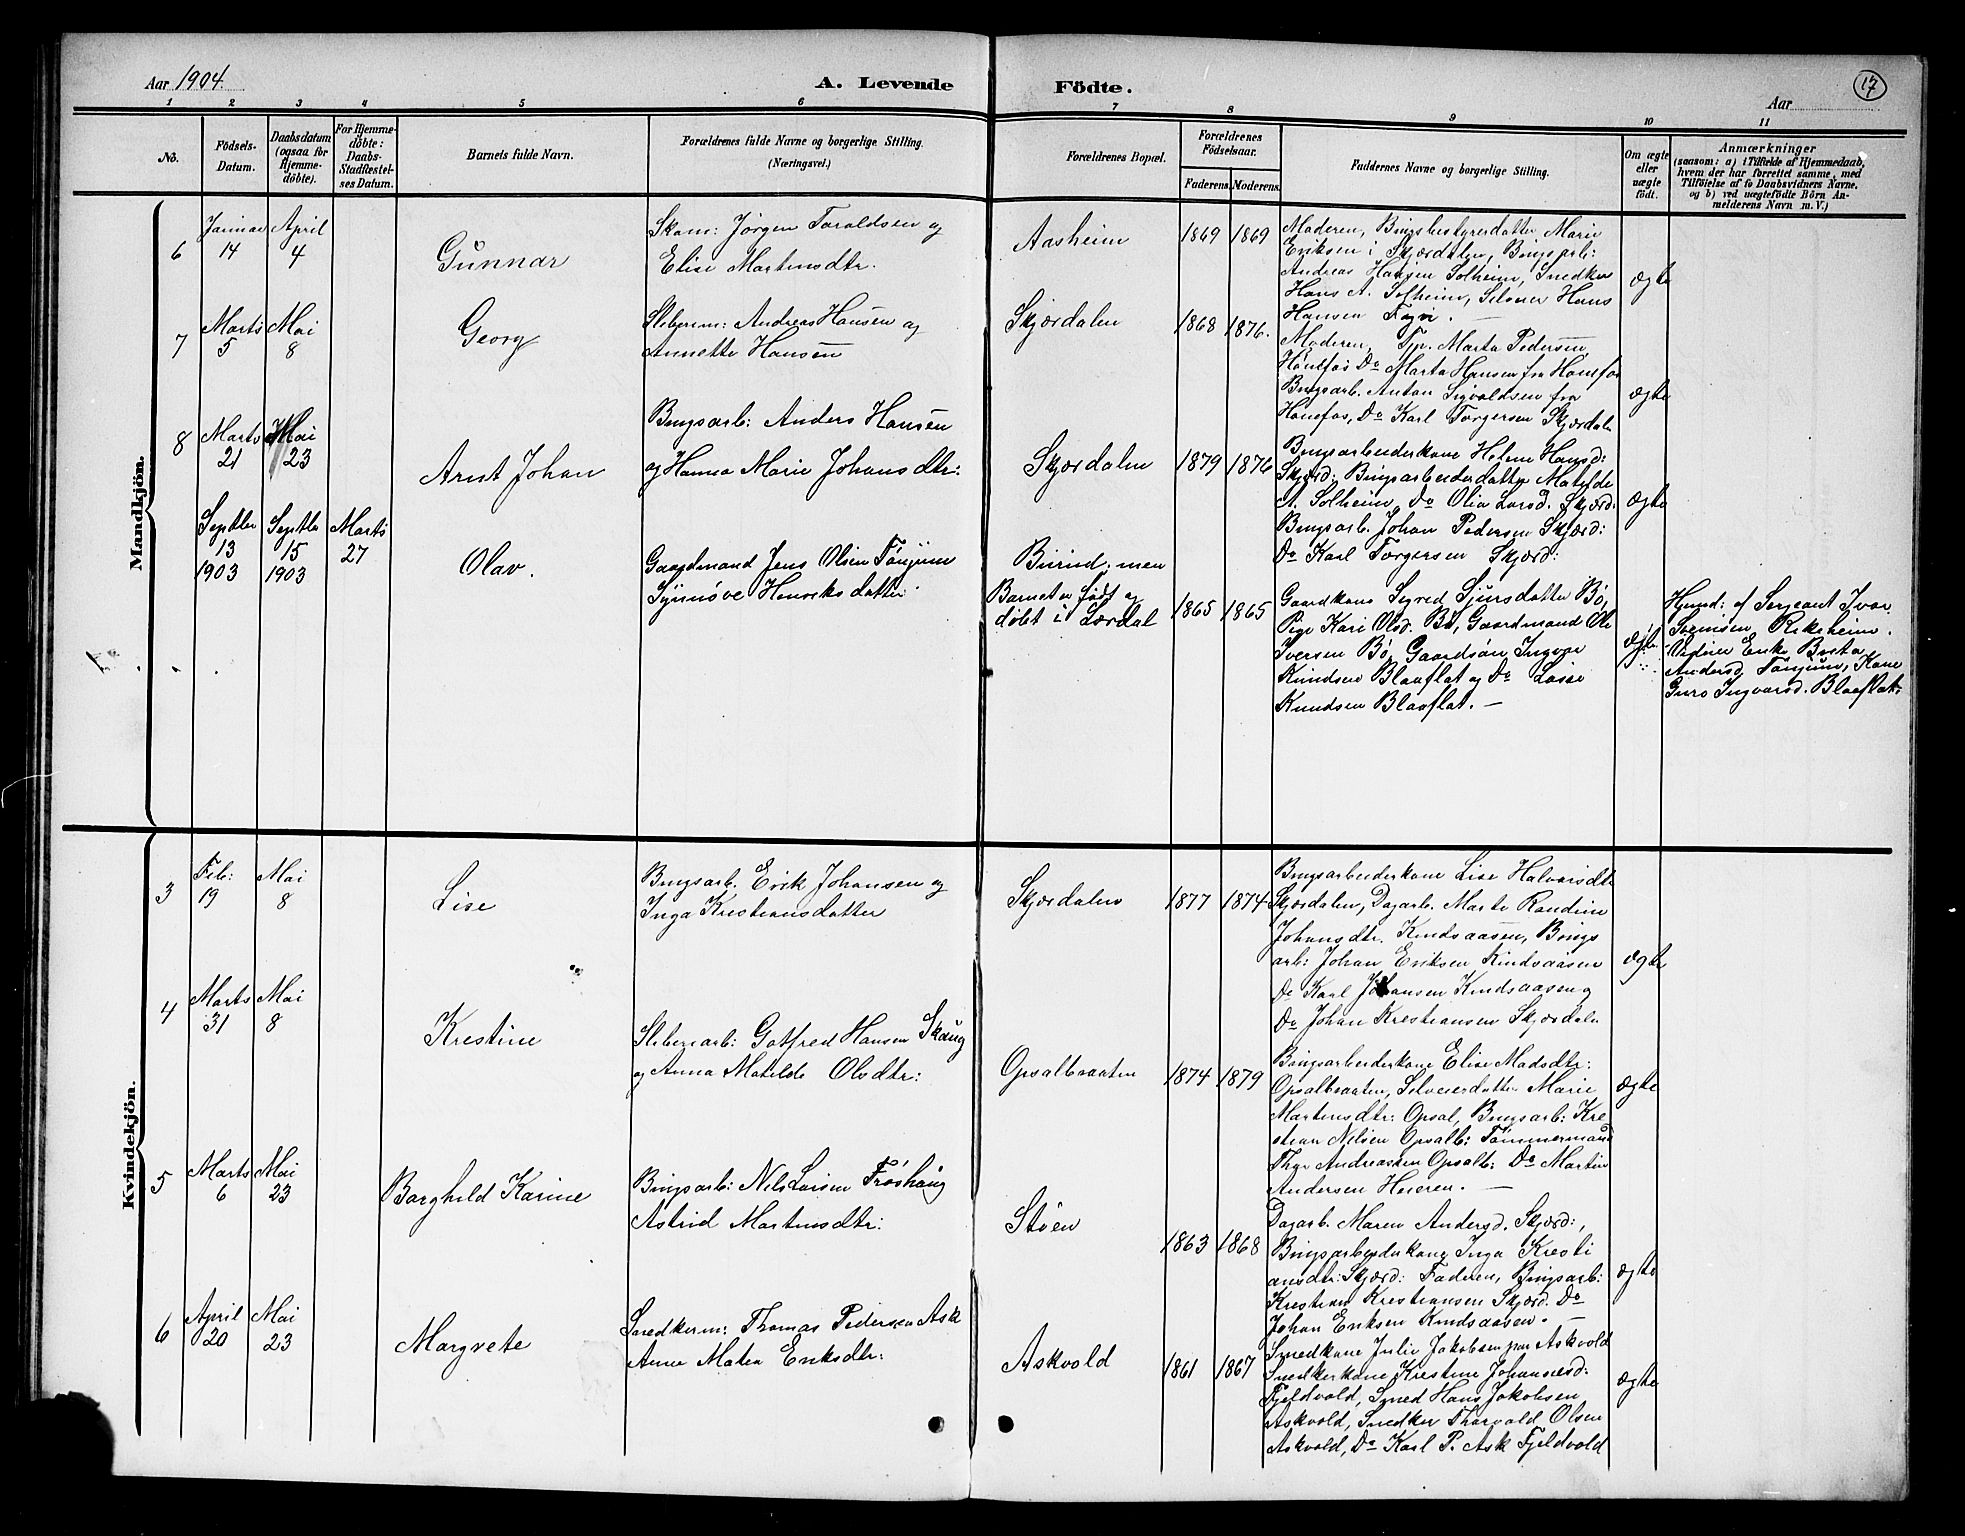 Aar 1904.
A. Levende Födte.
Aar
17
1 2 3 4 5 6 7 8 9 10 11
No.
Födsels-Datum.
Daabsdatum (ogsaa for Hjemme-döbte).
For Hjemme-döbte: Daabs-Stadfæstel-ses Datum.
Barnets fulde Navn.
Forældrenes fulde Navne og borgerlige Stilling.
(Næringsvei.)
Forældrenes Bopæl.
Forældrenes Födselsaar.
Faderens. Moderens.
Faddernes Navne og borgerlige Stilling.
Om ægte eller uægte födt.
Anmærkninger
(saasom: a) i Tilfælde af Hjemmedaab,
hvem der har forrettet samme, med
Tilföielse af to Daabsvidners Navne.
og b) ved uægtefödte Börn An-
melderens Navn m. V.)
Mandkjön.
6
Januar 14
April 4
Gunnar
Skom: Jørgen Taraldsen og
Elise Martinsdtr.
Aasheim
1869 1869
Moderen, Brugsbestyrerdatter Marie
Eriksen i Skjærdalen, Brugsarb:
Andreas Hansen Solheim, Snedker
Hans A. Solheim, Selveier Hans
Hansen
ægte
7
Marts 5
Mai 8
Georg
Sliberem: Andreas Hansen og
Annette Hansen
Skjærdalen
1868 1876.
Moderen, Tjp. Marta Pedersen
Hønefos Do Marta Hansen fra Hønefos
Brugsarb. Anton Sigvaldsen fra
Hønefos, Do Karl Torgersen Skjærdalen
ægte
8
Marts 21
Mai 23
Arnt Johan
Brugsarb: Anders Hansen
og Hanna Marie Johansdtr:
Skjærdalen
1879 1876
Brugsarbeiderkone Helene Hansd:
Skjærd. Brugsarbeiderdatter Matilde
A. Solheim, Do Olia Larsd. Skjærd:
Brugsarb. Johan Pedersen Skjærd:
Do Karl Torgersen Skjærd:
ægte
Septbr 13 1903
Septbr 15 1903
Marts 27
Olav.
Gaardmand Jens Olsen Tønjum
Synnøve Henriksdatter
Biirud, men
Barnet er født og
døbt i Lærdal
1865 1865
Gaardkone Sigrid Sjursdatter Bø,
Pige Kari Olsd. Bø, Gaardmand Ole
Iversen Bø, Gaardsøn Ingvar
Knudsen Blaaflat og Do Lasse
Knudsen Blaaflat. —
ægte
Hjemd: af Sergeant Ivar
Svensen
Vidner Enke Brita
Andersd Tønjum, Kone
Guro Ingvarsd. Blaaflat.
Kvindekjön.
3
Feb: 19
Mai 8
Lise
Brugsarb. Erik Johansen og
Inga Kristiansdatter
Skjærdalen
1877 1874
Brugsarbeiderkone Lise Halvorsdtr
Skjærdalen, Dagarb. Marte Randine
Johansdtr. Knudsaasen, Brugs
arb: Johan Eriksen Knudsaasen
Do Karl Johansen Knudsaasen og
Do Johan Krestiansen Skjærdalen
ægte
4
Marts 31
Mai 8
Krestine
Sliberiarb: Gotfred Hansen Skaug
og Anna Matilde Olsdtr:
Opsalbraaten
1874 1879
Brugsarbeiderkone Elise Madsdtr:
Opsalbraaten, Selveierdatter Marie
Martinsdtr: Opsal, Brugsarb: Kre
stian Nilsen Opsalb: Tømmermand
Thge Andreassen Opsalb: Do Martin
Andersen Heieren. —
ægte
5
Marts 6
Mai 23
Borghild Karine
Brugsarb: Nils Larsen Frøshaug
Astrid Martinsdtr:
Støen
1863 1868
Dagarb. Maren Andersd. Skjærd:,
Brugsarbeiderkone Inga Kresti
ansdtr: Skjærd: Faderen, Brugsarb:
Krestian Krestiansen Skjærd. Do
Johan Eriksen Knudsaasen. —
ægte
6
April 20
Mai 23
Margrete
Snedkerm: Thomas Pedersen Ask
Anne Matea Eriksdtr:
Askvold
1861 1867
Smedkone Julie Jakobsen paa Askvold
Snedkerkone Krestine Johannesd:
Fjeldvold, Smed Hans Jakobsen
Askvold, Snedker Thorvald Olsen
Askvold, Do Karl P. Ask Fjeldvold
ægte